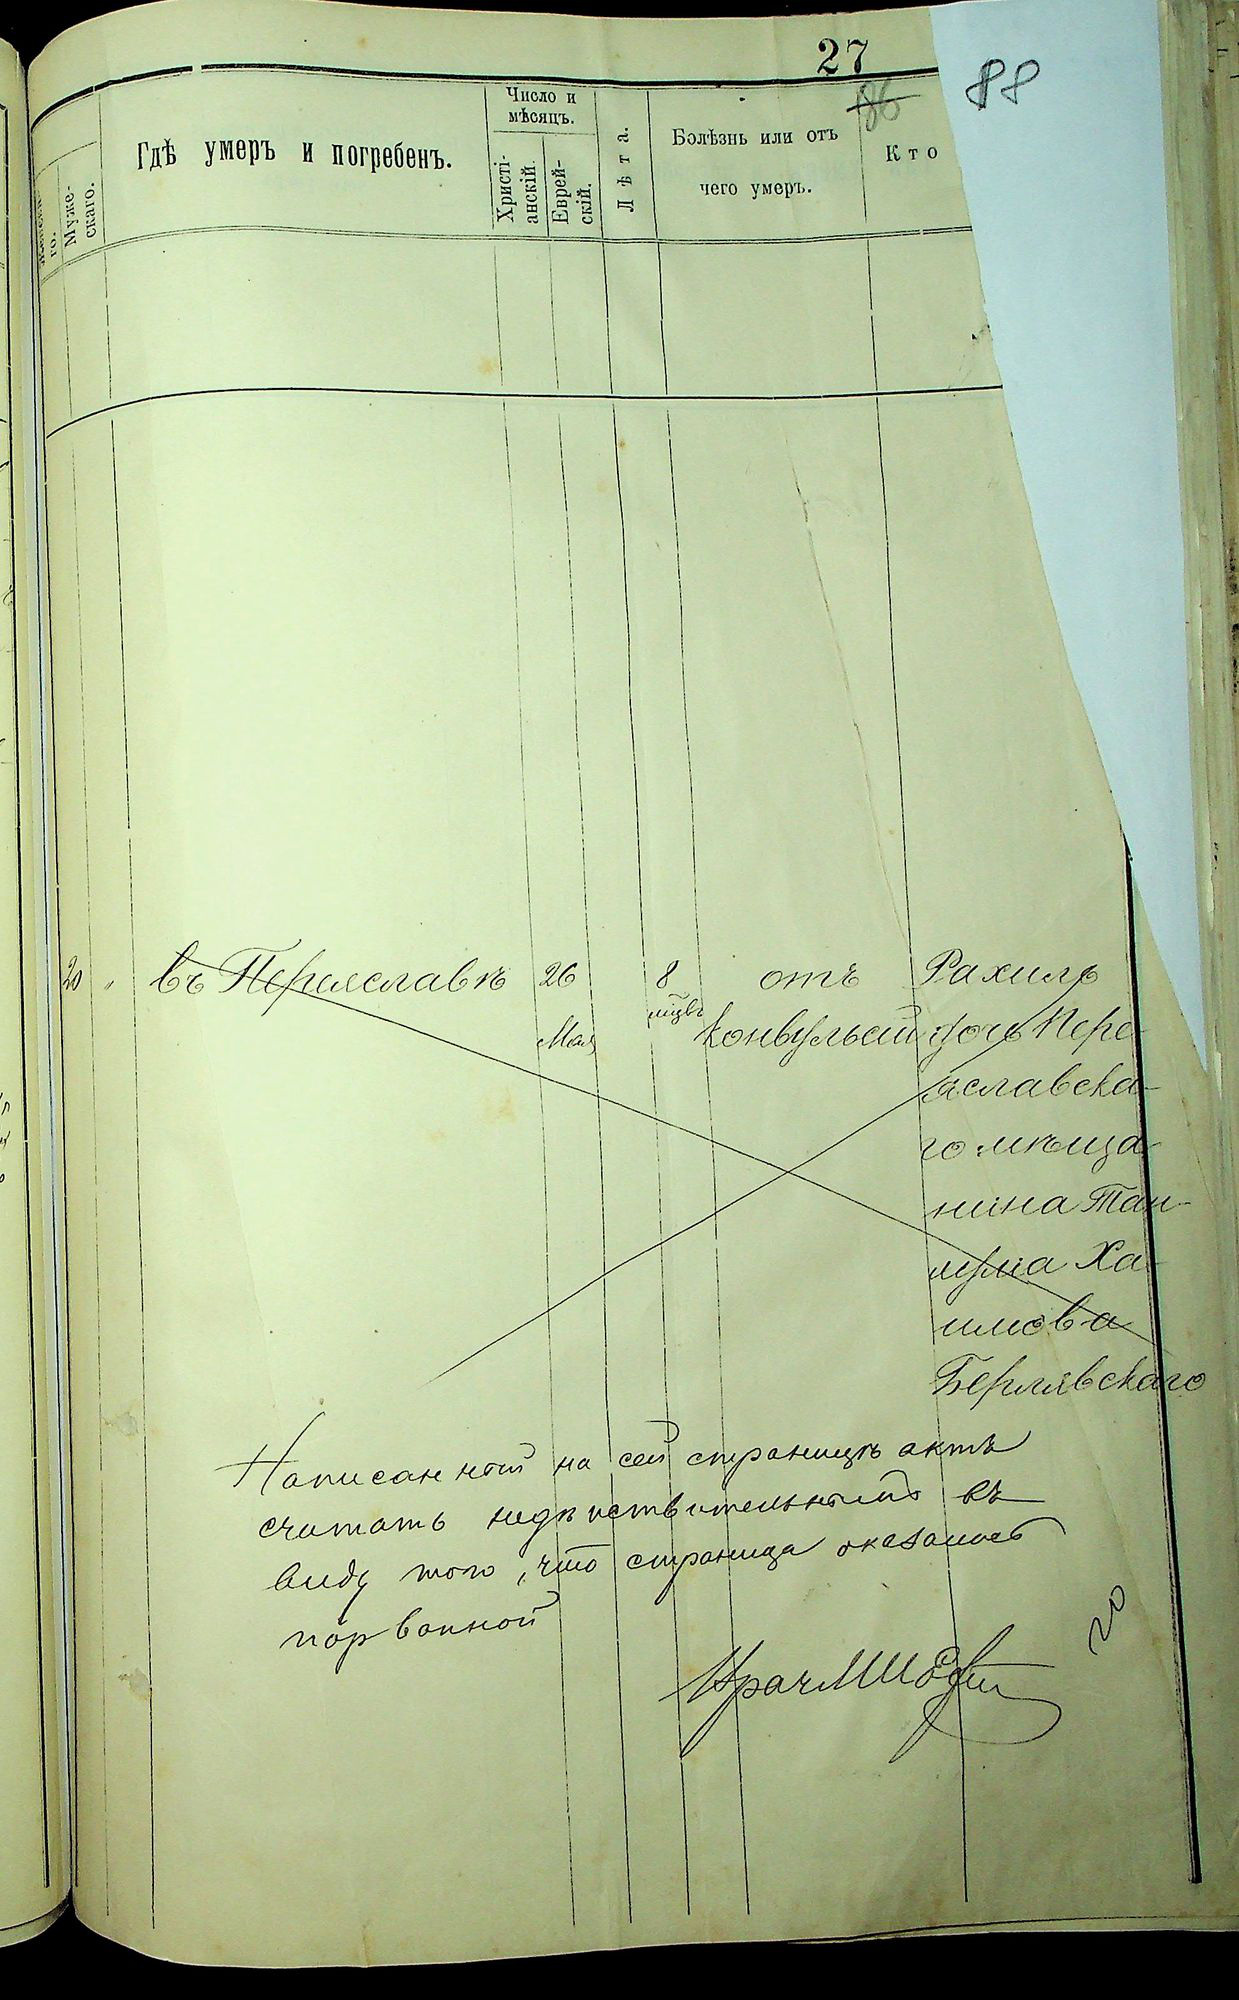 27
88
86
Женска-
го.
Муже-
скаго.
Гдѣ умеръ и погребенъ.
Число и
мѣсяцъ.
Христі-
анскій.
Еврей-
скій.
Лѣта.
Болѣзнь или отъ
чего умеръ.
Кто
20 " въ Переяславѣ 26 8 отъ Рахиль
Мая мцвъ конвульсій дочь Пере-
яславска-
го мѣща-
нина Тан-
хума Ха-
имова
Берлявскаго
Написанный на сей страницѣ актъ
считать недѣйствительнымъ въ
виду того, что страница оказалась
порванной
20